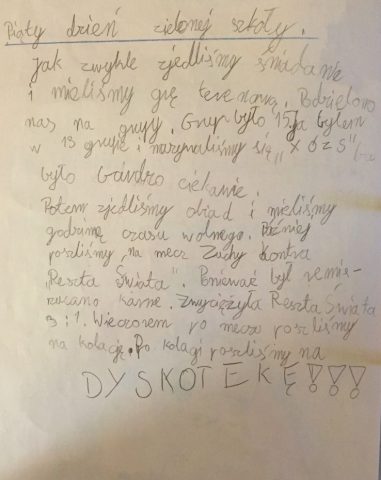 Piąty dzień zielonej szkoły.
Jak zwykle zjedliśmy śniadanie
i mieliśmy grę terenową. Podzielono
nas na grupy. Grup było 15. Ja byłem
w 13 grupie i nazywaliśmy się
było bardzo ciekawie.
Potem zjedliśmy obiad i mieliśmy
godzinę czasu wolnego. Później
poszliśmy na mecz Zuchy kontra
"Reszta Świata". Ponieważ był remis-
rzucano karne. Zwyciężyła Reszta Świata
3:1. Wieczorem po meczu poszliśmy
na kolację. Po kolacji poszliśmy na
DYSKOTEKĘ!!!